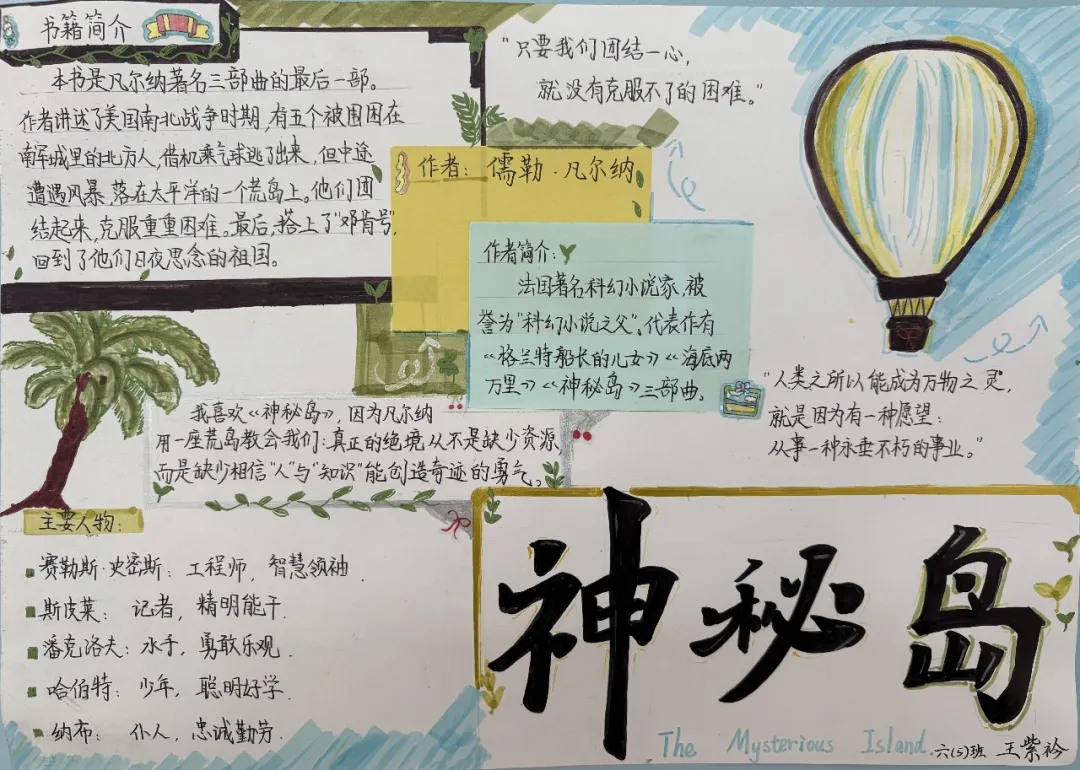 书籍简介
本书是凡尔纳著名三部曲的最后一部。
作者讲述了美国南北战争时期,有五个被围困在
南军城里的北方人,借机乘气球逃了出来,但中途
遭遇风暴,落在太平洋的一个荒岛上。他们团
结起来,克服重重困难。最后,搭上了"邓肯号",
回到了他们日夜思念的祖国。
"只要我们团结一心,
就没有克服不了的困难。"
作者:儒勒·凡尔纳
作者简介:
法国著名科幻小说家,被
誉为"科幻小说之父"。代表作有
《格兰特船长的儿女》《海底两
万里》《神秘岛》三部曲。
"人类之所以能成为万物之灵,
就是因为有一种愿望:
从事一种永垂不朽的事业。"
我喜欢《神秘岛》,因为凡尔纳
用一座荒岛教会我们:真正的绝境,从不是缺少资源,
而是缺少相信"人"与"知识"能创造奇迹的勇气。
主要人物:
赛勒斯·史密斯:工程师,智慧领袖.
斯皮莱:记者,精明能干.
潘克洛夫:水手,勇敢乐观.
哈伯特:少年,聪明好学.
纳布:仆人,忠诚勤劳.
神秘岛
The Mysterious Island.
六(5)班 王紫衿